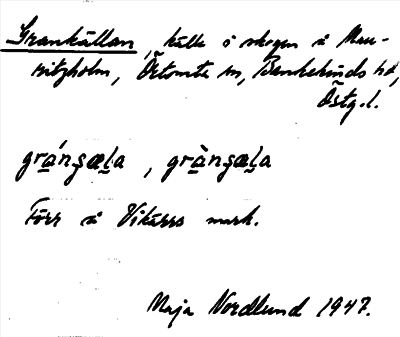 Grankällan, källa i skogen å Mau-
ritzholm, Örtomta sn, Bankekinds hd,
Östg.l.
grá̱nʂæḻa, grà̱nʂæḻa
Förr å Vikärrs mark.
Maja Nordlund 1947.